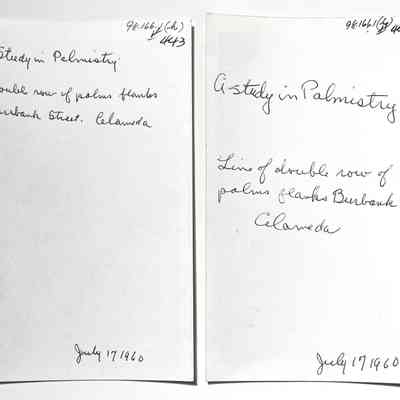 98.166.1(ch)
443
Study in Palmistry
ouble row of palms flanks
urbank Street. Alameda
July 17 1960
98.166.1
A study in Palmistry
Line of double row of
palms flanks Burbank
Alameda
July 17 1960